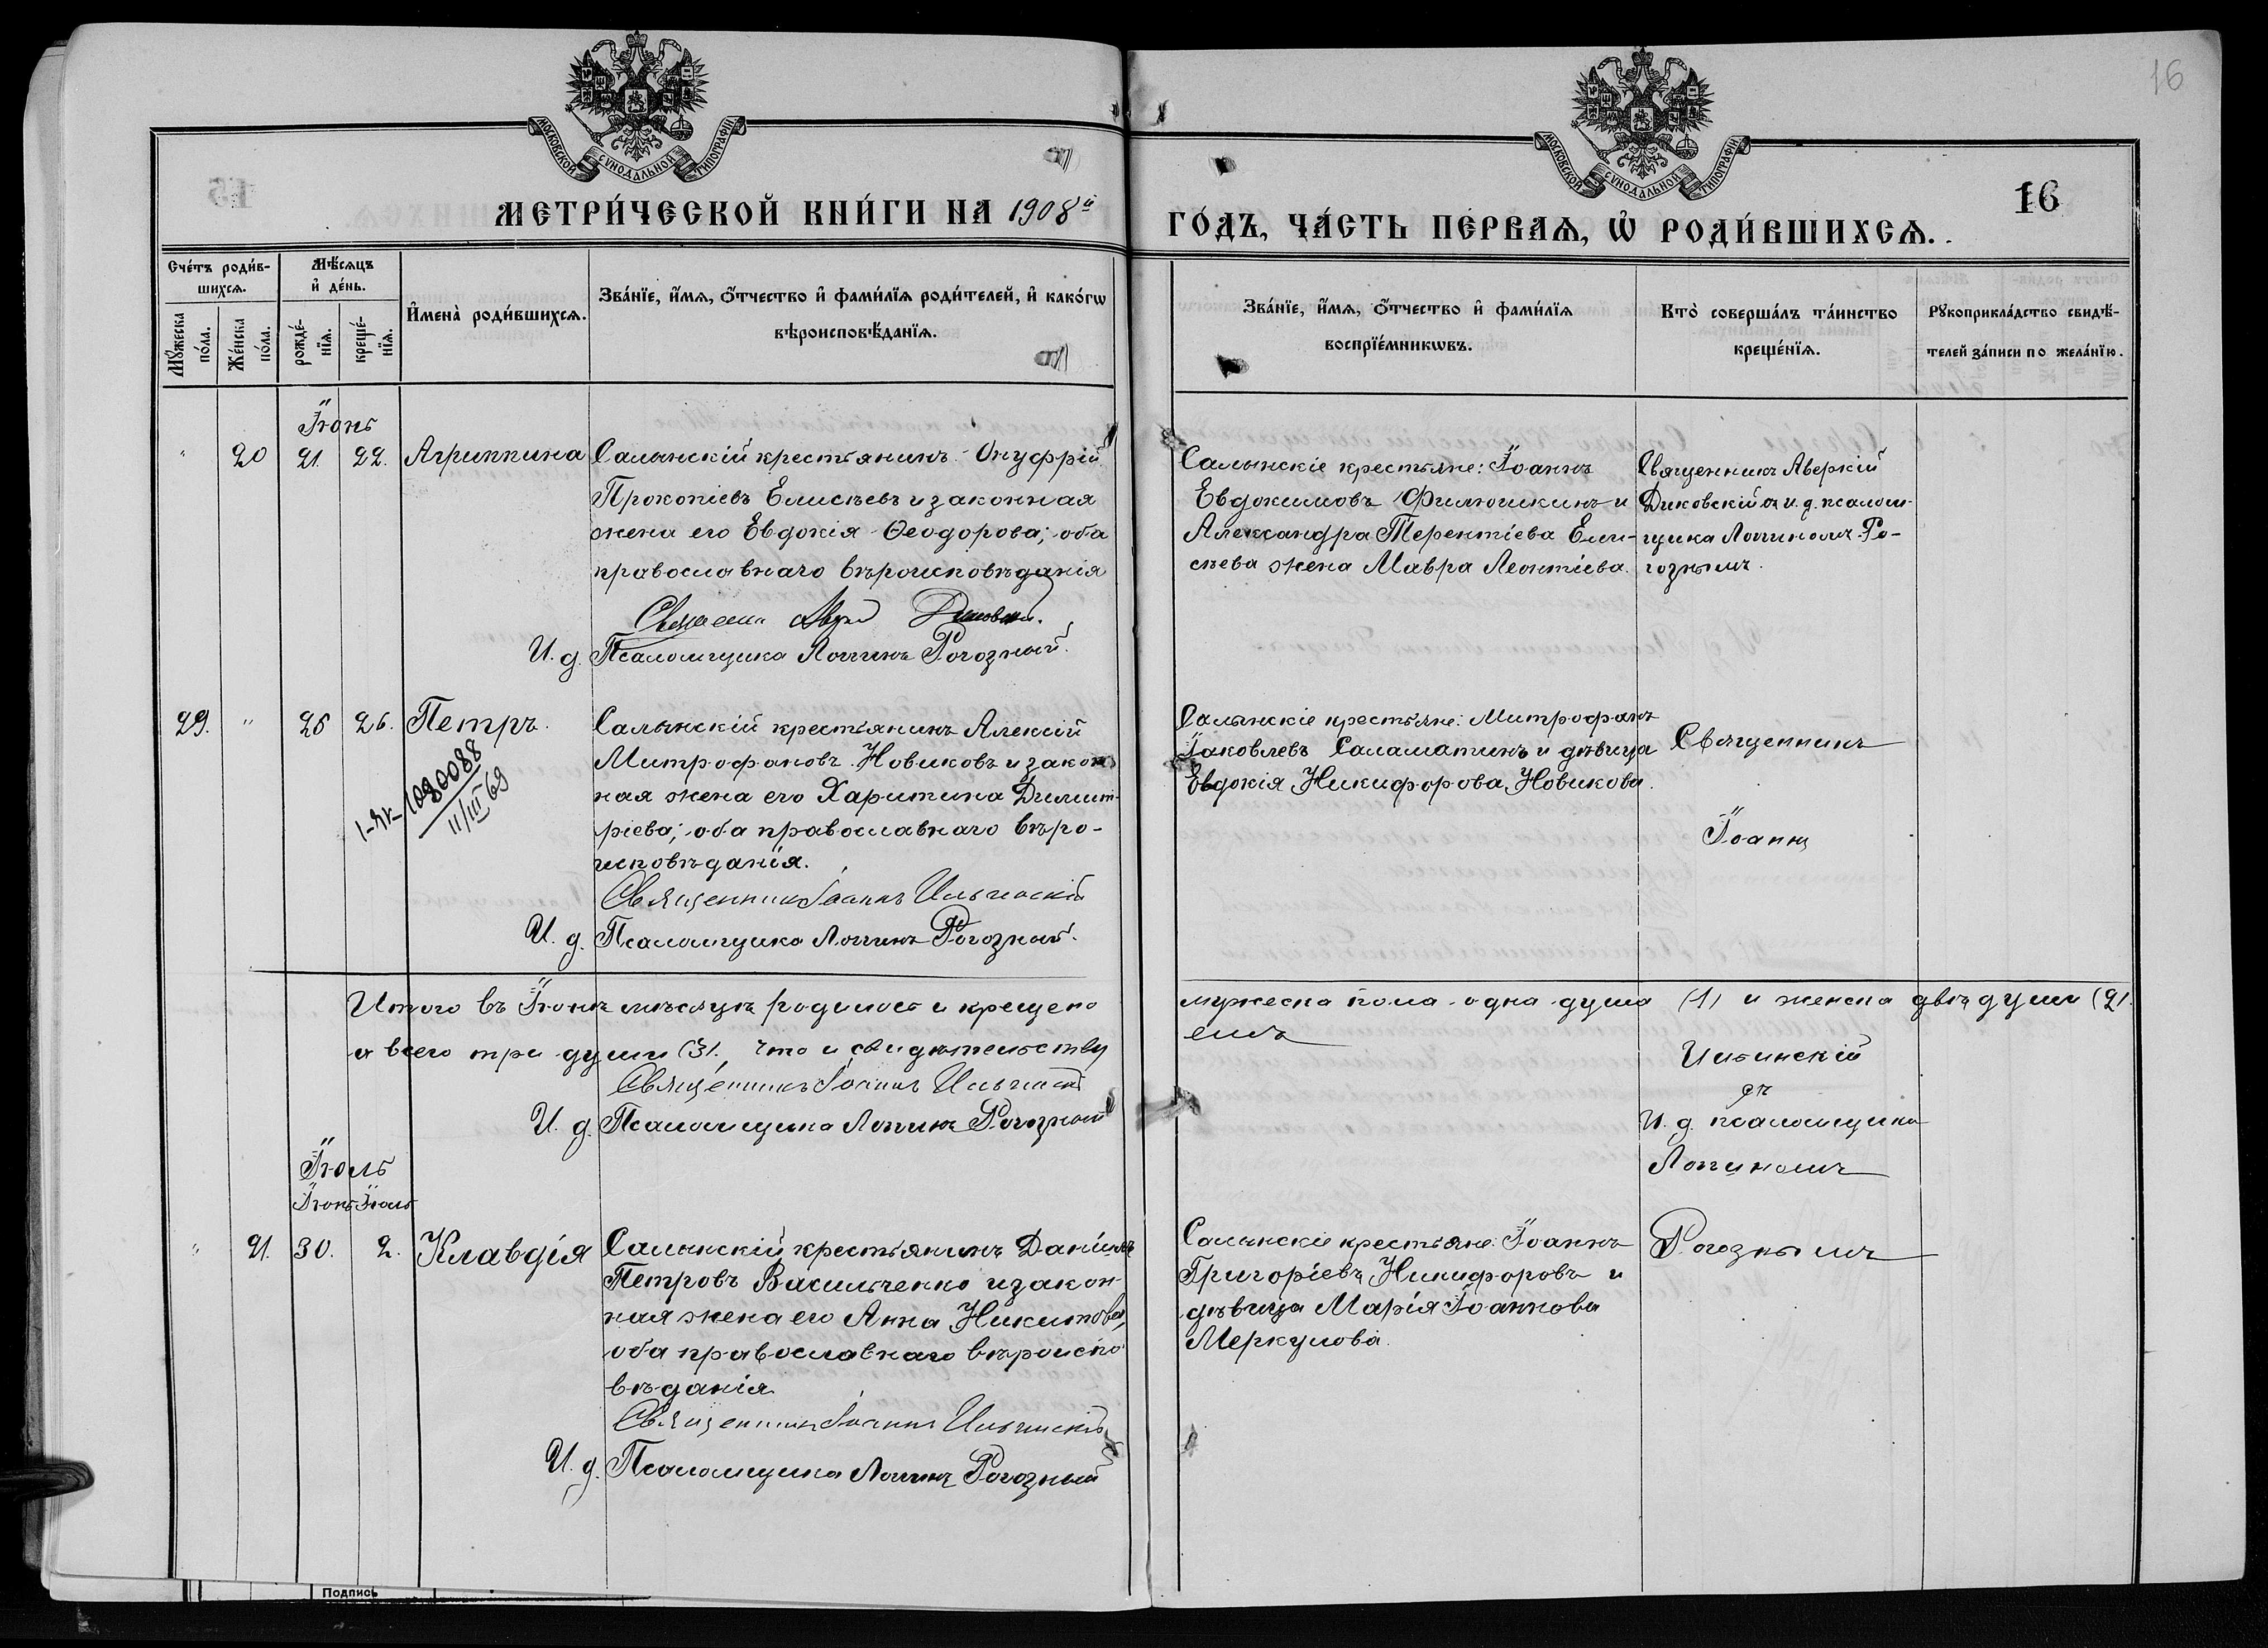 16
МОСКОВСКОЙ СѴНОДАЛЬНОЙ ТИПОГРАФІИ
МОСКОВСКОЙ СѴНОДАЛЬНОЙ ТИПОГРАФІИ
16
МЕТРИ́ЧЕСКОЙ КНИ́ГИ НА 1908й
ГО́ДЪ, ЧА́СТЬ ПЕ́РВАѦ, Ѡ҆ РОДИ́ВШИХСѦ.
Сче́тъ роди́в-
шихсѧ.
Мꙋ́жеска
по́ла.
Же́нска
по́ла.
Мѣ́сѧцъ
и҆ де́нь.
рожде́-
нїѧ.
креще́-
нїѧ.
И҆мена̀ роди́вшихсѧ.
Зва́нїе, и҆́мѧ, ѻ҆́тчество и҆ фами́лїѧ роди́телей, и҆ како́гѡ
вѣроисповѣ́данїѧ.
Зва́нїе, и҆́мѧ, ѻ҆́тчество и҆ фами́лїѧ
воспрїе́мникѡвъ.
Кто̀ соверша́лъ та́инство
креще́нїѧ.
Рꙋкоприкла́дство свидѣ́-
телей за́писи по жела́нїю.
Іюнь
" 20 21. 22. Агриппина
Салынскій крестьянинъ Онуфрій
Прокопіевъ Елисѣевъ и законная
жена его Евдокія Ѳеодорова; оба
православнаго вѣроисповѣданія
И. д. Псаломщика Логинъ Рогозный.
Салынскіе крестьяне: Іоаннъ
Евдокимовъ Филюшкинъ и
Александра Терентіева Ели-
сѣева жена Мавра Леонтіева.
Священникъ Аверкій
Диковскій съ и. д. псалом-
щика Логиномъ Ро-
гознымъ.
29. " 25 26. Петръ.
1-ЯК- 1080088
11/III 69
Салынскій крестьянинъ Алексій
Митрофановъ Новиковъ и закон
ная жена его Харитина Димит-
ріева; оба православнаго вѣро-
исповѣданія.
Священникъ Іоаннъ Ильинскій
И. д. Псаломщика Логинъ Рогозный.
Салынскіе крестьяне: Митрофанъ
Іаковлевъ Саламатинъ и дѣвица
Евдокія Никифорова Новикова.
Священникъ
Іоаннъ
Итого въ Іюнѣ мѣсяцѣ родилось и крещено
мужеска пола одна душа (1) и женска двѣ души (2)
а всего три души (3). Что и свидѣтельству
емъ
Священникъ Іоаннъ Ильинскій
И. д. Псаломщика Логинъ Рогозный
Ильинскій
съ
И. д. псаломщика
Логиномъ
Рогознымъ
Іюль
Іюнь Іюль
" 21. 30. 2. Клавдія
Салынскій крестьянинъ Даніилъ
Петровъ Васильченко и закон
ная жена его Анна Никитова,
оба православнаго вѣроиспо
вѣданія
Священникъ Іоаннъ Ильинскій
И. д. Псаломщика Логинъ Рогозный
Салынскіе крестьяне: Іоаннъ
Григоріевъ Никифоровъ и
дѣвица Марія Іоаннова
Меркулова.
Подпись